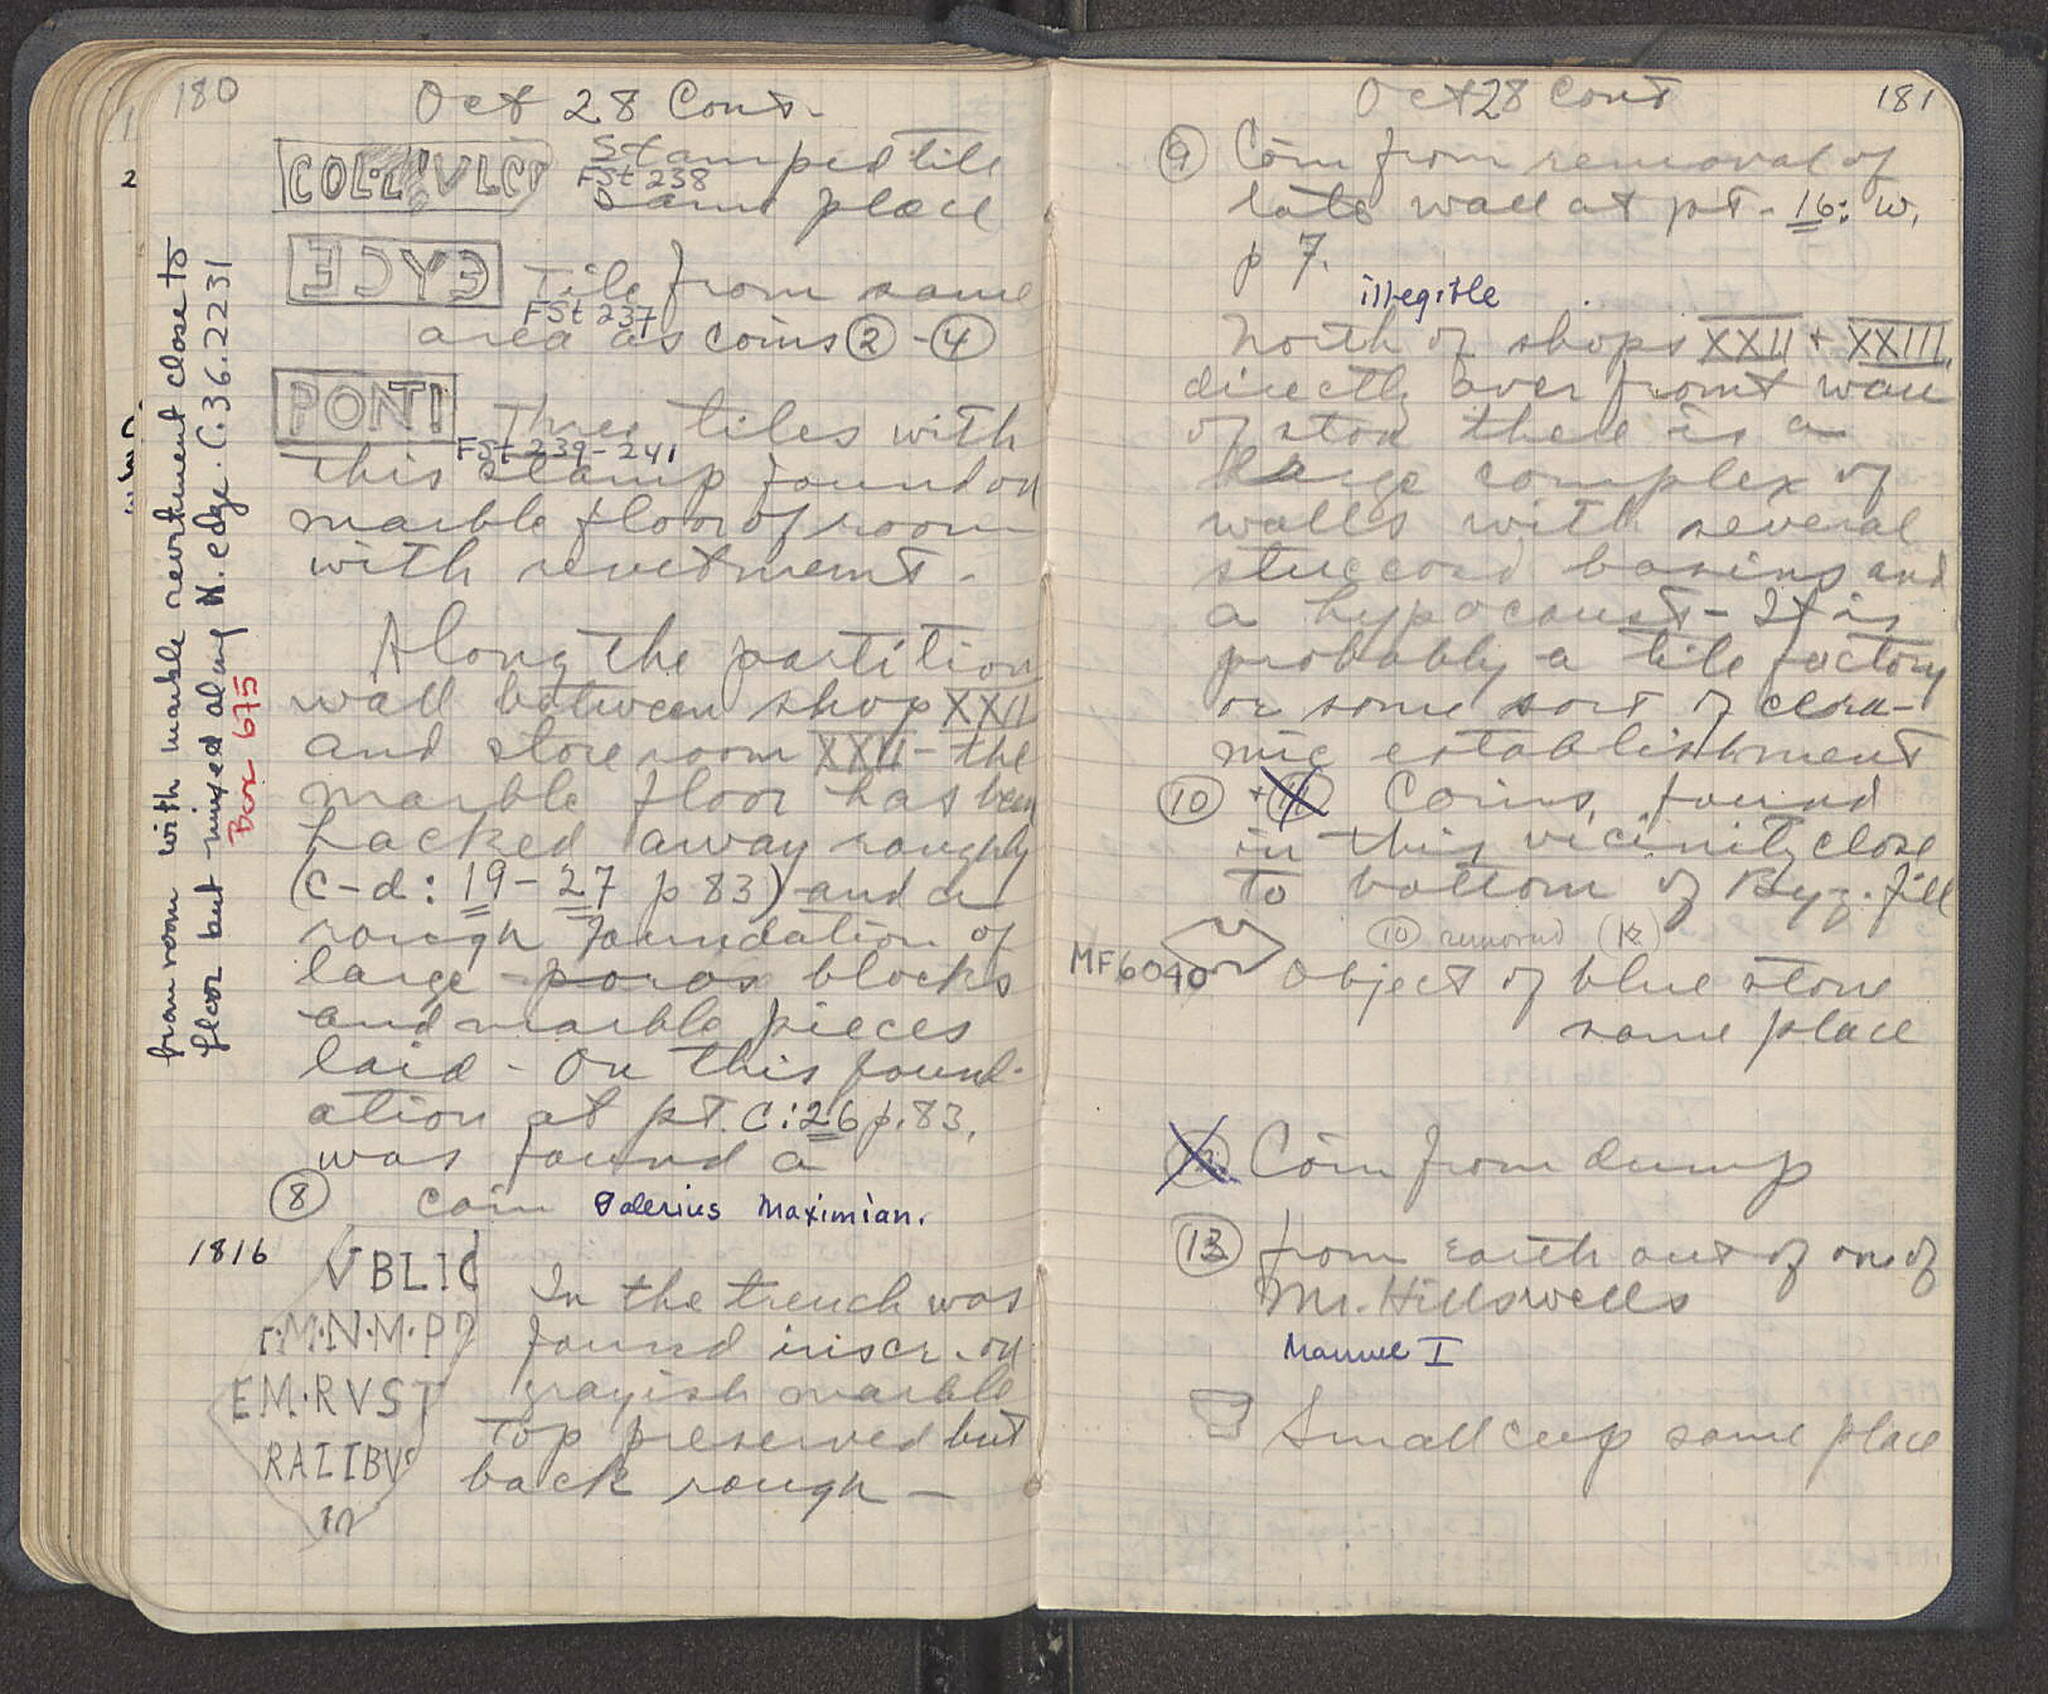 180
Oct 28 Cont.
COL·L·IVLCO
Stamped tile
FSt 238
Same place
ƎDYƎ
Tile from same
FSt 237
area as coins ② - ④
PONTI
Three tiles with
FSt 239-241
this stamp found on
marble floor of room
with revetment.
Along the partition
wall between shop XXII
and store room XXII - the
marble floor has been
hacked away roughly
(c-d: 19-27 p 83) and a
rough foundation of
large poros blocks
and marble pieces
laid - On this found-
ation at pt. C:26 p. 83,
was found a
⑧ coin Galerius Maximian.
1816
VBLIC
M·N·M·P
EM·RVST
RATIBVS
In the trench was
found inscr. on
grayish marble
Top preserved but
back rough -
from room with marble revetment close to
floor but mixed along N. edge. C.36.2231
Box 675
2
Oct 28 Cont
181
⑨ Coin from removal of
late wall at pt. 16: w,
p 7.
illegible
North of shops XXII + XXIII,
directly over front wall
of stoa there is a
large complex of
walls with several
stuccoed basins and
a hypocaust - It is
probably a tile factory
or some sort of cera-
mic establishment
⑩ + ⑪ Coins, found
in this vicinity close
to bottom of Byz. fill
⑩ removed (K)
MF6040
Object of blue stone
same place
⑫ Coin from dump
⑬ from earth out of one of
Mr. Hill's wells
Manuel I
Small cup same place